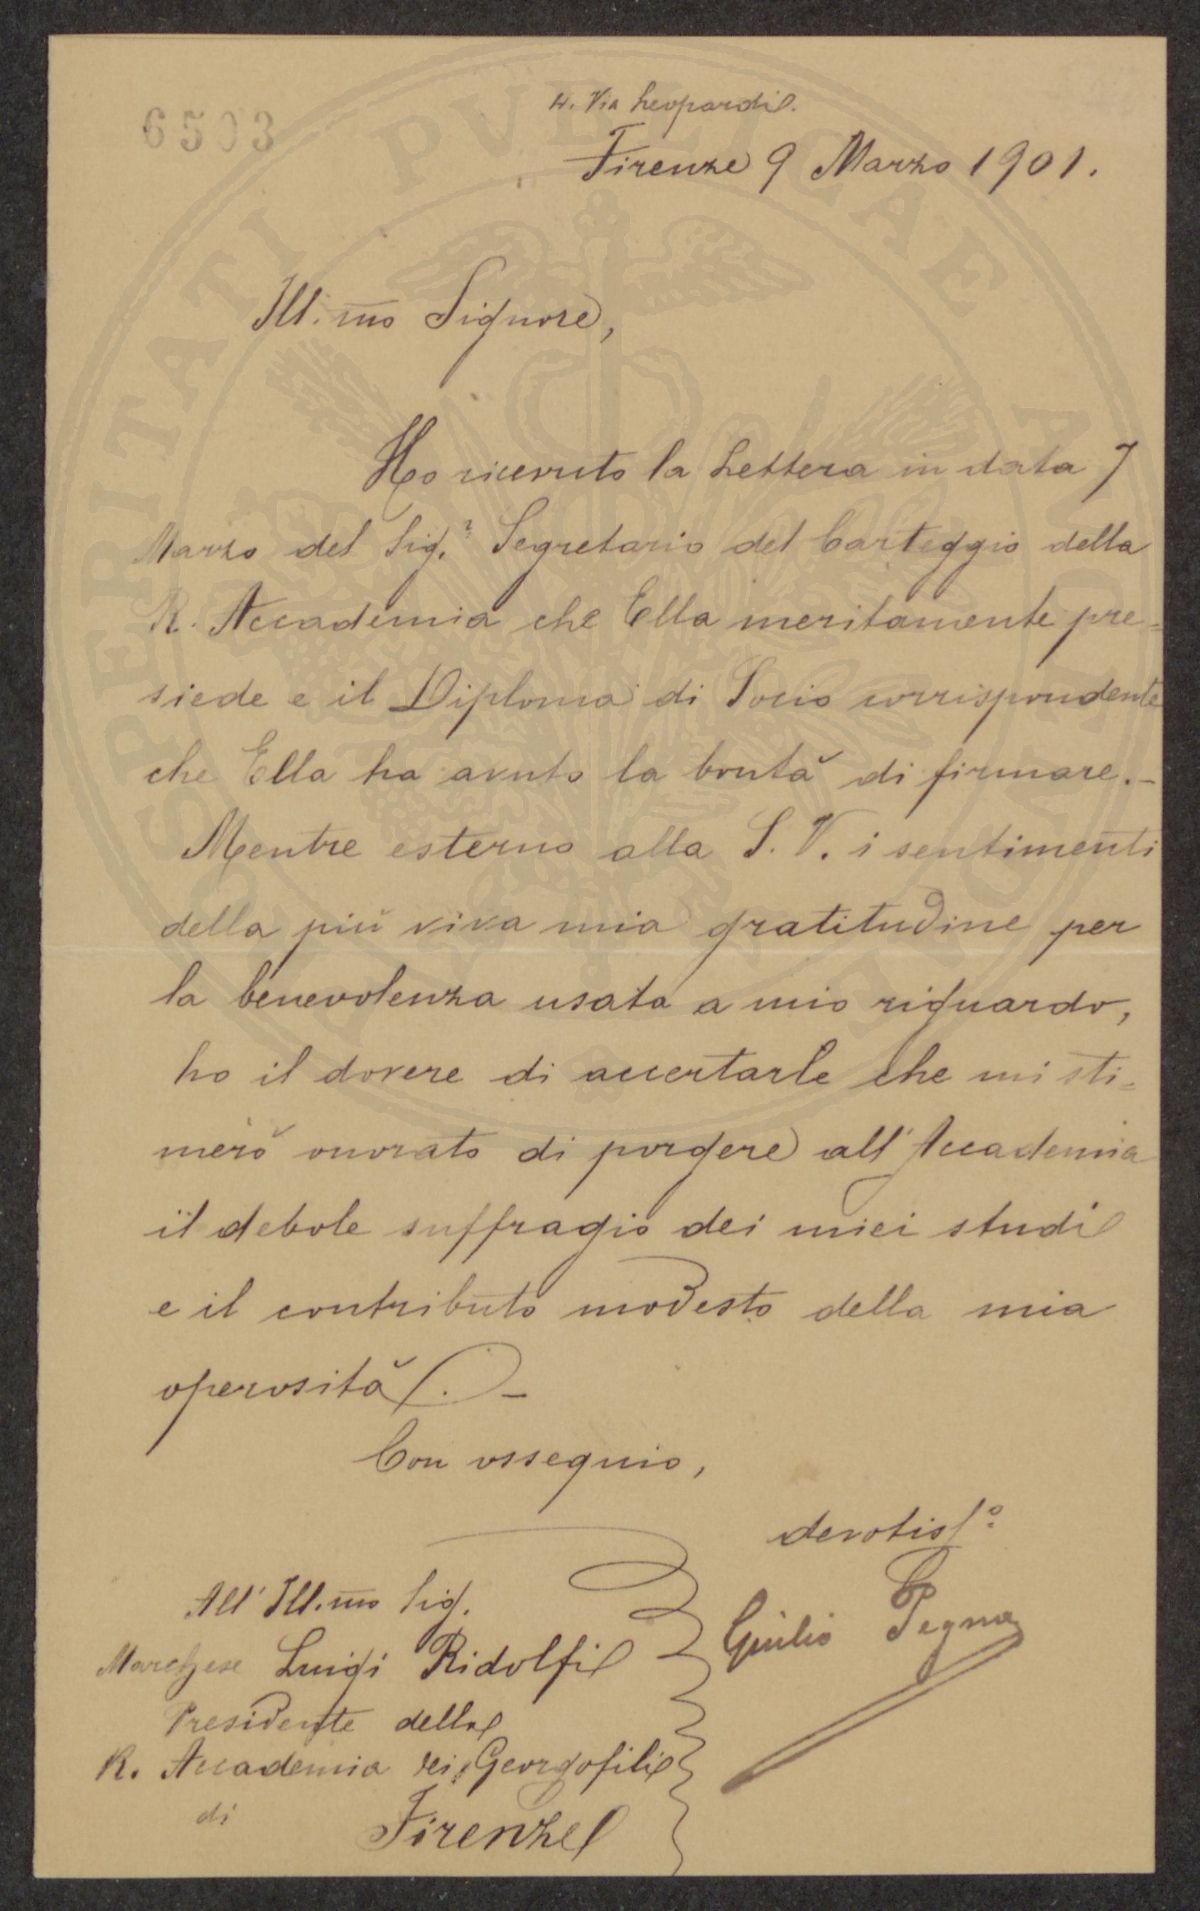 6503
4. Via Leopardi.
Firenze 9 Marzo 1901.
Ill.mo Signore,
Ho ricevuto la Lettera in data 7
Marzo del Sig.r Segretario del Carteggio della
R. Accademia che Ella meritamente pre=
siede e il Diploma di Socio corrispondente
che Ella ha avuto la bontà di firmare.-
Mentre esterno alla S. V. i sentimenti
della più viva mia gratitudine per
la benevolenza usata a mio riguardo,
ho il dovere di accertarle che mi sti=
merò onorato di porgere all'Accademia
il debole suffragio dei miei studi
e il contributo modesto della mia
operosità.-
Con ossequio,
devotiss.o
Giulio Pegna
All'Ill.mo Sig.
Marchese Luigi Ridolfi
Presidente della
R. Accademia dei Georgofili
di Firenze
PROSPERITATI PVBLICAE AVGENDAE